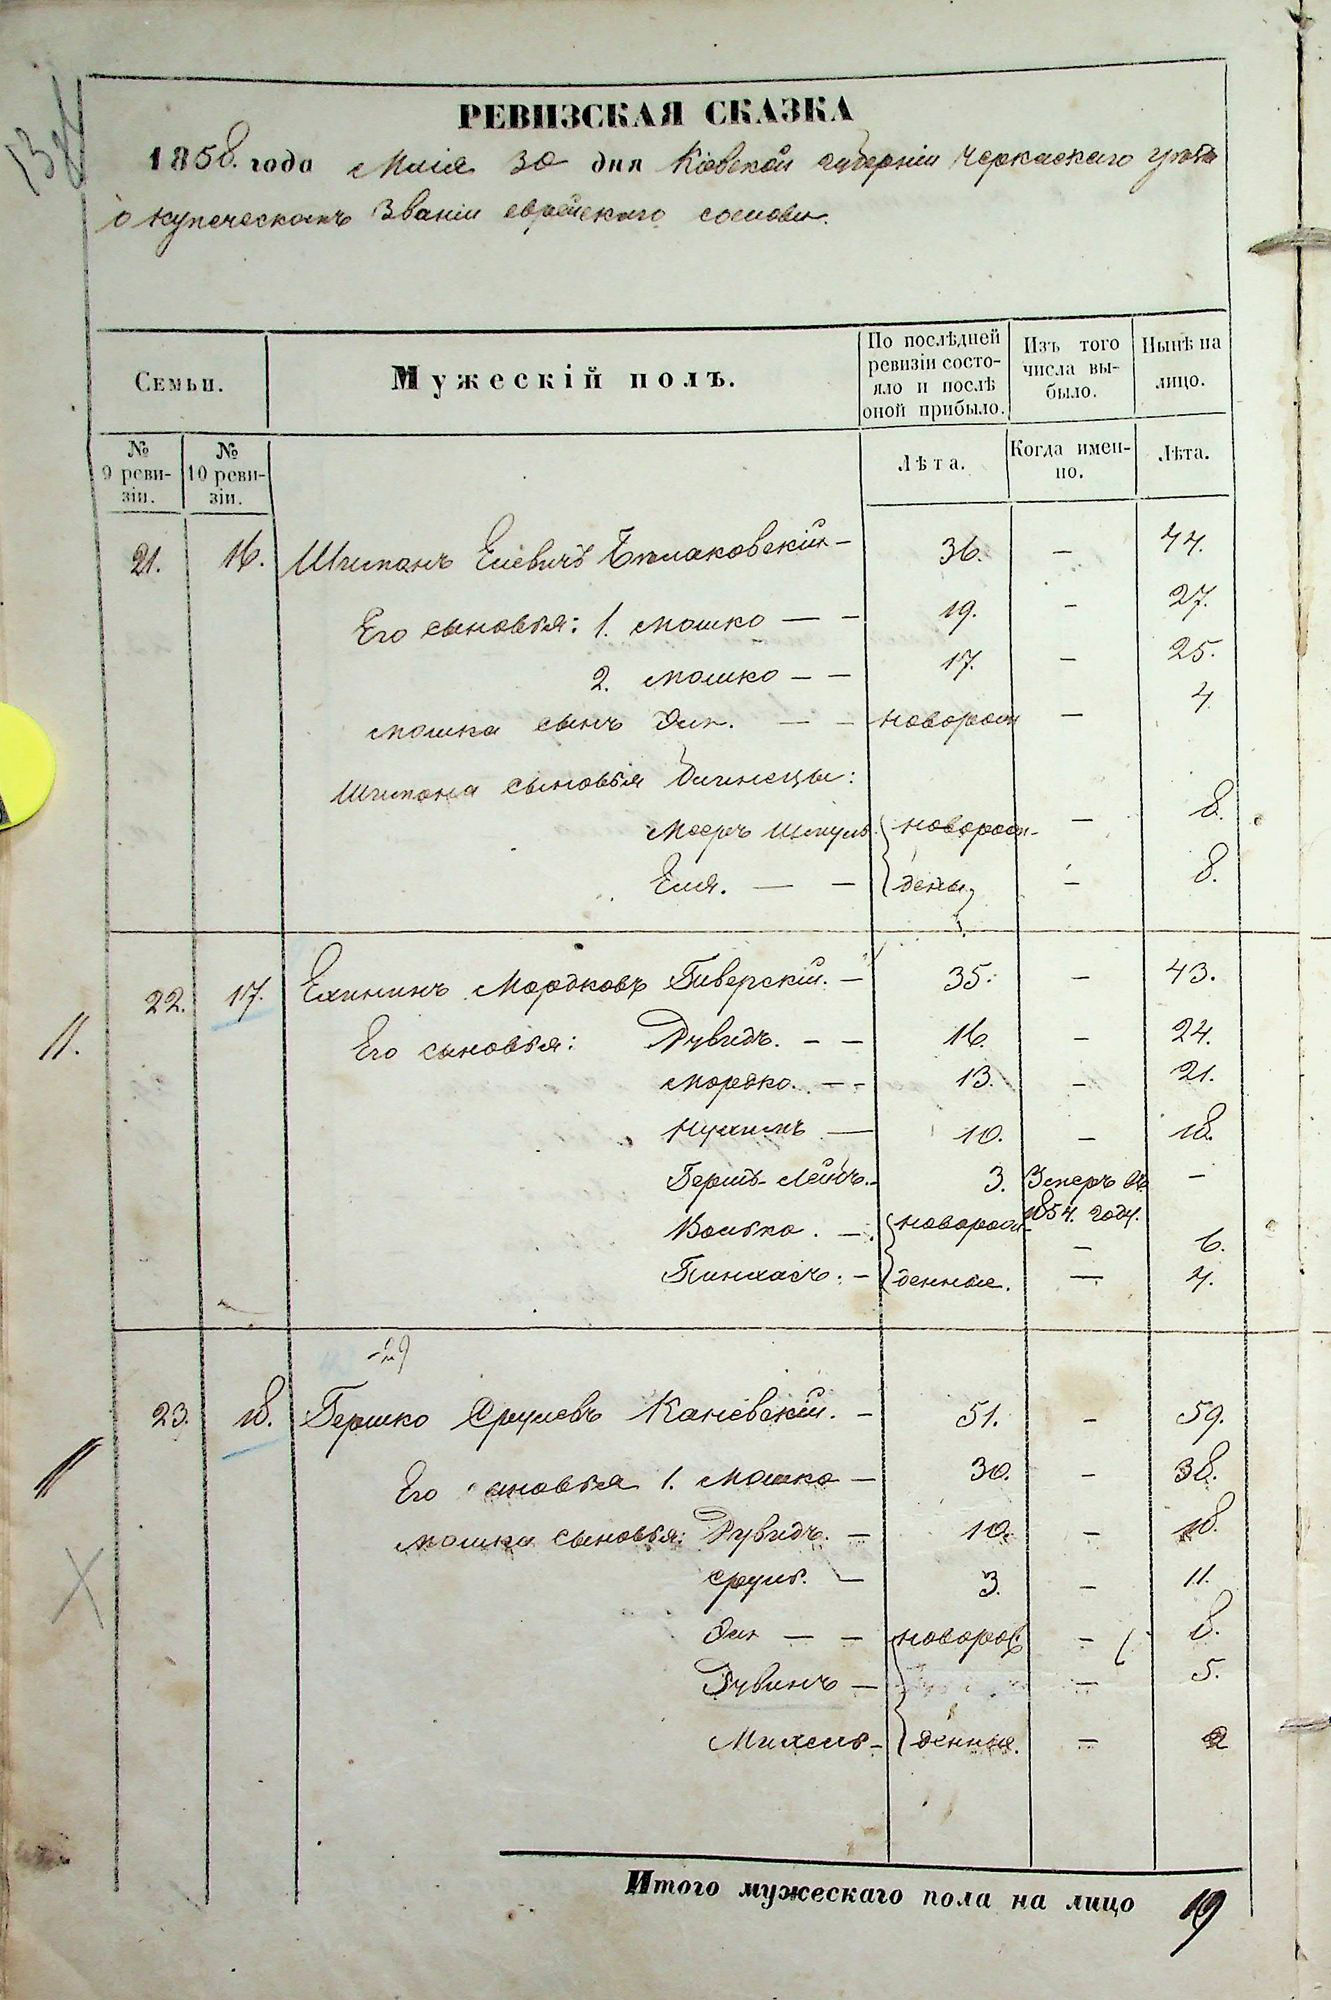 РЕВИЗСКАЯ СКАЗКА
1858. года Маія 30 дня Кіевской губерніи Черкаскаго уезда
о купеческомъ Званіи еврейскаго
Семьи.
Мужескій полъ.
По послѣдней ревизіи состояло и послѣ оной прибыло.
Изъ того числа выбыло.
Нынѣ на лицо.
№ 9 ревизіи.
№ 10 ревизіи.
Лѣта.
Когда именно.
Лѣта.
21. 16. Шимонъ Елевичъ 36. — 44.
Его сыновья: 1. Мошко — — 19. — 27.
2. Мошко — — 17. — 25.
Мошка сынъ — — новорож — 4.
Шимона сыновья близнецы:
Мееръ Шмуль. новорож- — 8.
Еля. — — дены — 8.
22. 17. Мордковъ 35. — 43.
Его сыновья: Дувидъ. — — 16. — 24.
Мордко. — — 13. — 21.
Нухимъ — 10. — 18.
Гершъ-Лейбъ. 3. Умеръ въ 1854. году. —
Волько. — новорож- — 6.
Пинхасъ. — денные. — 4.
23. 18. Гершко Срулевъ Каневскій. — 51. — 59.
Его сыновья 1. Мошко — 30. — 38.
Мошки сыновья: Дувидъ. — 10. — 18.
Сруль. — 3. — 11.
— — новорож — 8.
Рувинъ — — 5.
Михель — денные. — 2
Итого мужескаго пола на лицо 19